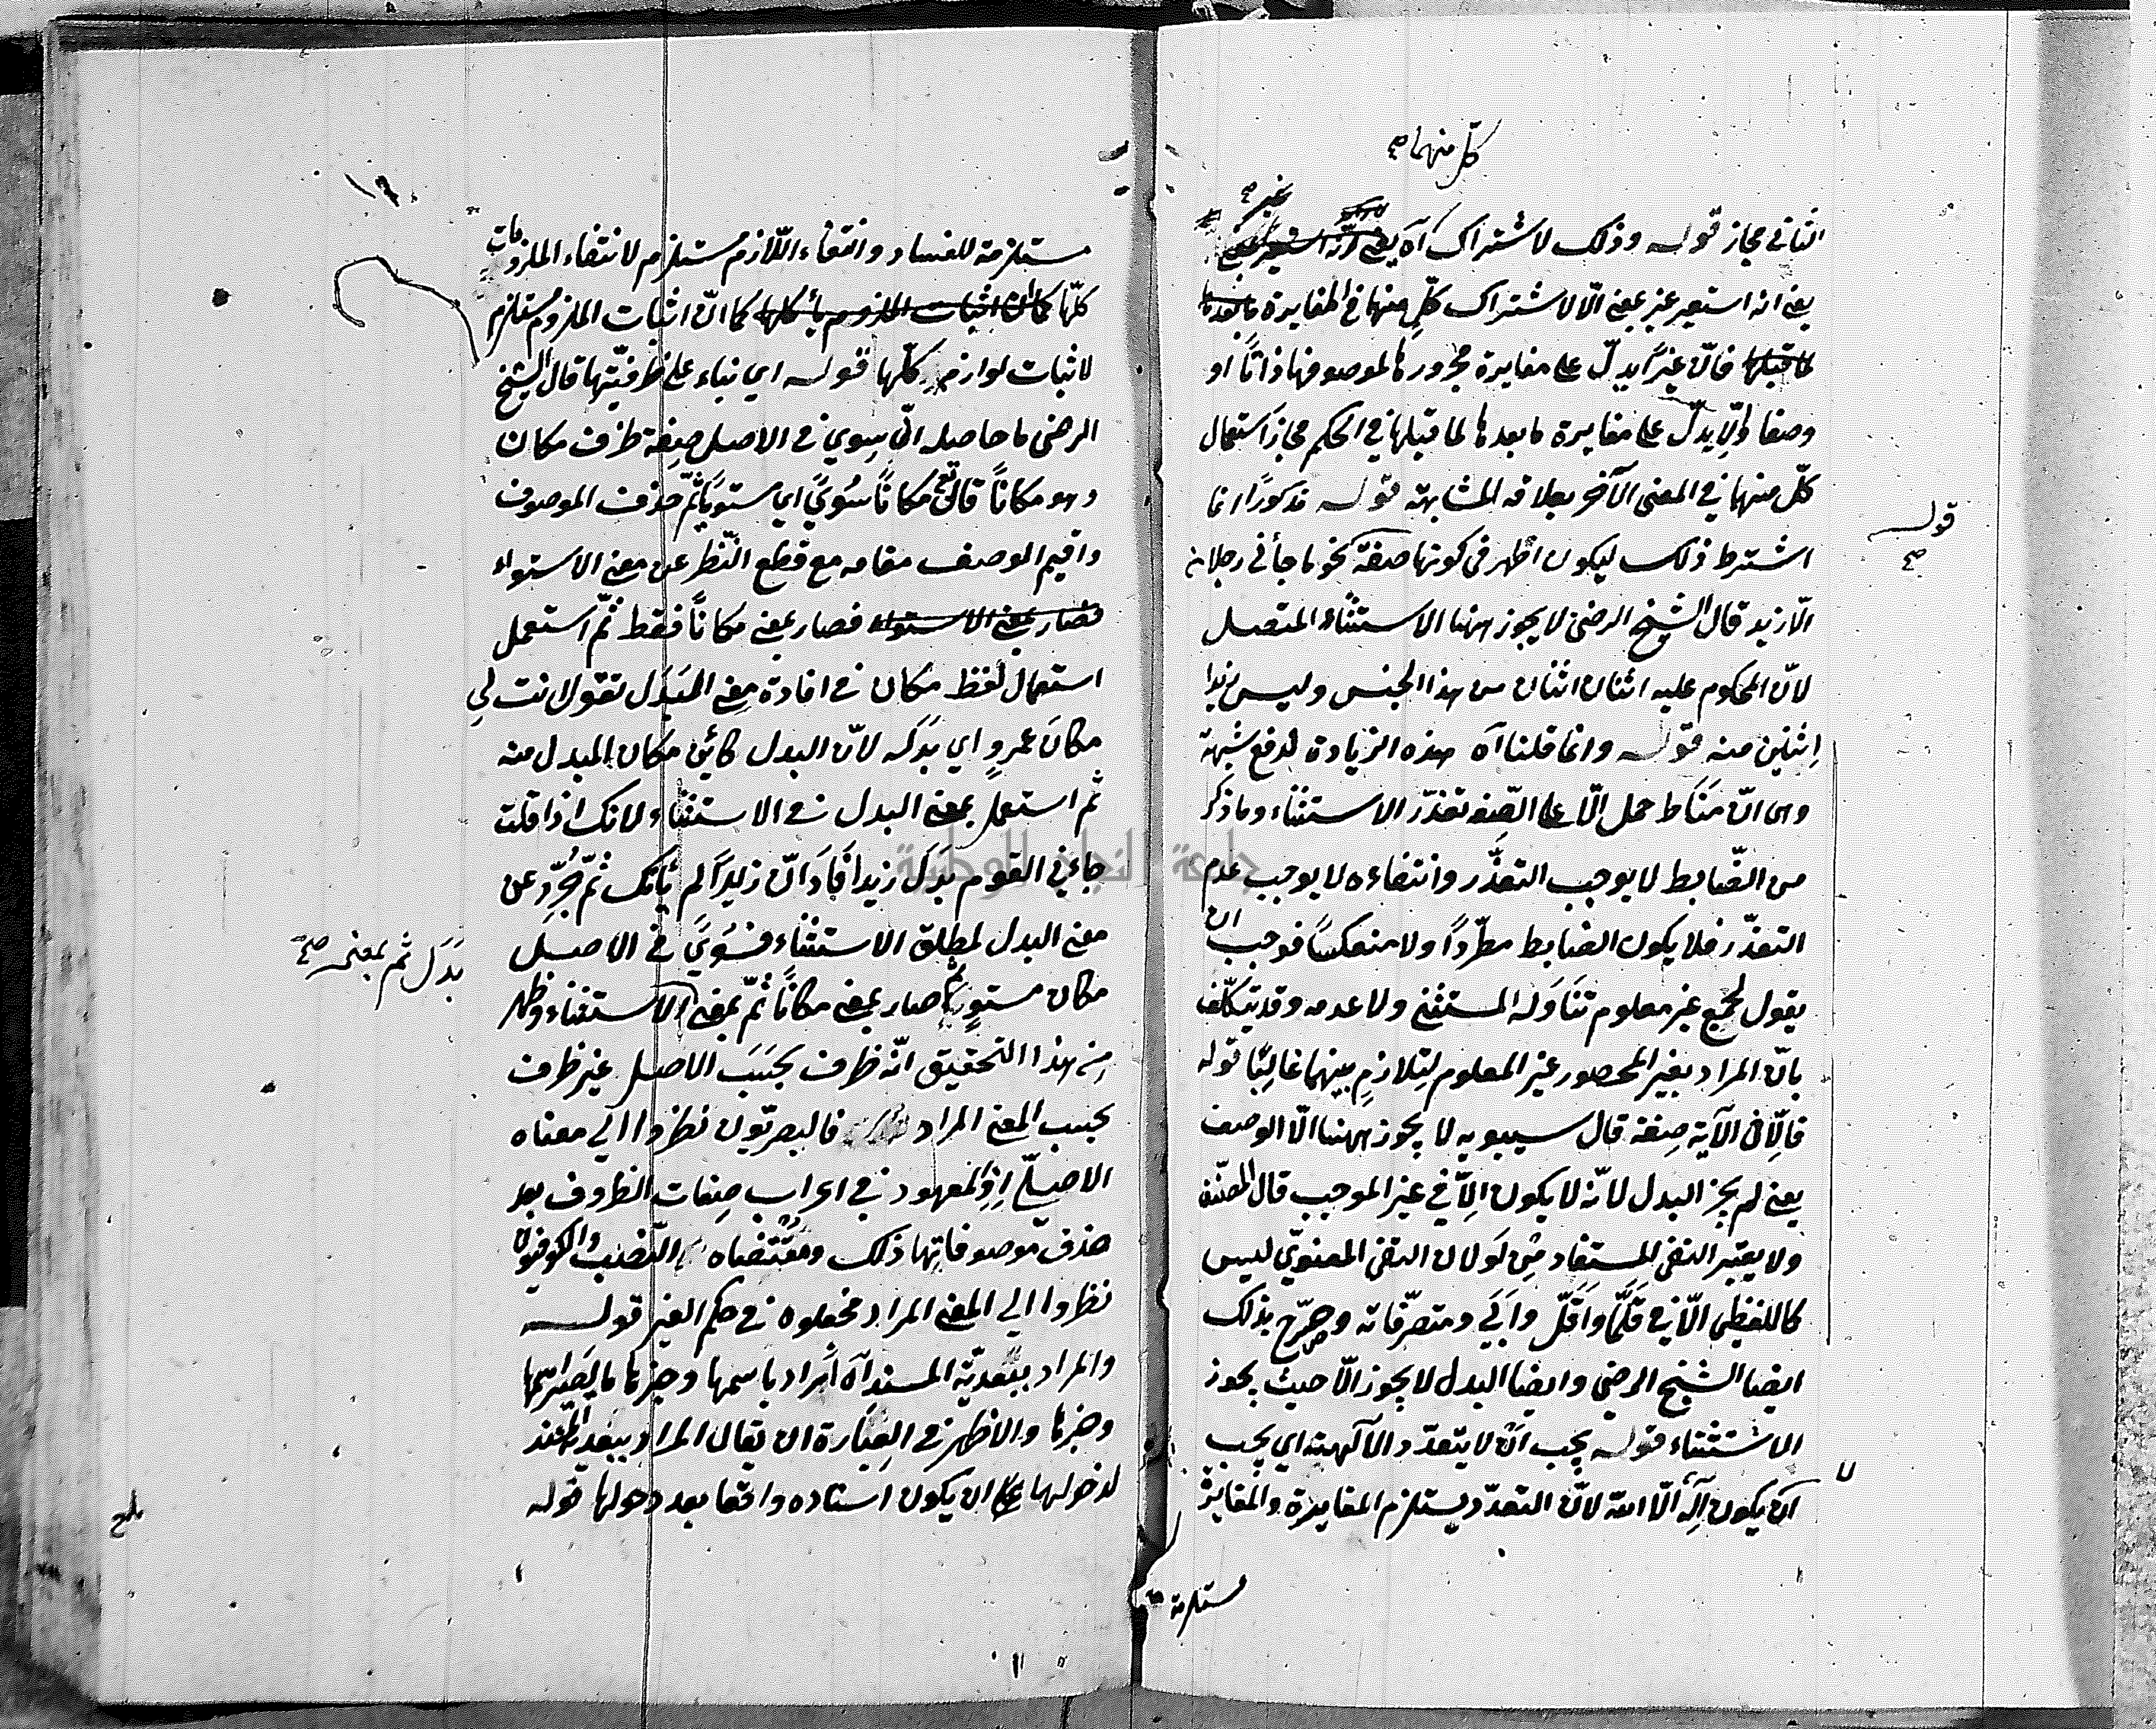 كلّ منهما صح
غير صح
الثاني مجاز قوله وذلك لاشتراك آه يعني انه استعير
يعني انه استعير غير بمعنى الّا لاشتراك كلّ منهما في المغايرة ما بعدها
لما قبلها فانّ غيرًا يدلّ على مغايرة مجرورها لموصوفها ذاتًا او
وصفا والّا يدلّ على مغايرة ما بعدها لما قبلها في الحكم مجاز استعمال
كلّ منهما في المعنى الآخر بعلاقة المشابهة قوله مذكورًا انما
قوله صح
اشترط ذلك ليكون اظهر في كونها صفة نحو ما جاءني رجلان
الّا زيد قال الشيخ الرضى لا يجوز ههنا الاستثناء المتصل
لانّ المحكوم عليه اثنان اثنان من هذا الجنس وليس زيدا
اثنين منه قوله وانما قلنا آه هذه الزيادة لدفع شبهة
وهى انّ مَنَاط حمل الّا على الصّفه تعذّر الاستثناء وما ذكر
من الضّابط لا يوجب التعذّر وانتفاءه لا يوجب عدم
التعذّر فلا يكون الضابط مطّردًا ولا منعكسًا فوجب ان
يقول لجمع غير معلوم تَنَاوَله المستثنى ولا عدمه وقد يتكلّف
بانّ المراد بغير المحصور غير المعلوم لتلازمٍ بينهما غالبًا قوله
فالّا في الآية صفة قال سيبويه لا يجوز ههنا الّا الوصف
يعني لم يجز البدل لانّه لا يكون الّا في غير الموجب قال المصنّف
ولا يعتبر النفى المستفاد مِن لَو لان النفى المعنويّ ليس
كاللفظى الّا في قلّما واَقلّ واَبَى ومتصرّفاته وصرّح بذلك
ايضا الشيخ الرضى وايضا البدل لا يجوز الّا حيث يجوز
الاستثناء قوله يجب ان لا يتعدّد الآلهة اي يجب
لا
ان يكون آله الّا الله لانّ التعدّد يستلزم المغايرة والمغايرة
مستلزمة
١٩
مستلزمة للفساد وانتفاء اللّازم مستلزم لانتفاء الملزومات
كلّها كما ان اثبات الملزوم بأكلها كما انّ اثبات الملزوم مستلزم
لاثبات لوازمه كلّها قوله اي بناء على ظرفيّتها قال الشيخ
الرضى ما حاصله انّ سِوي في الاصل صفة ظرف مكان
وهو مكانًا قال تع مكانًا سُوىً اي مستويًا ثمّ حذف الموصوف
واقيم الوصف مقامه مع قطع النّظر عن معنى الاستواء
فصار بمعنى الاستواء فصار بمعنى مكانًا فقط ثمّ استعمل
استعمال لفظ مكان في افادة معنى البَدَل تقول انت لي
مكانَ عمرٍو اي بَدَله لانّ البدل كائن مكان المبدل منه
ثم استعمل بمعنى البدل في الاستثناء لانك اذا قلت
جاءني القوم بَدَل زيد افادَ انّ زيدًا لم يأتك ثمّ جُرِّد عن
معنى البدل لمطلق الاستثناء فسُوىً في الاصل
بَدَل ثم بمعنى صح
مكان مستوٍ ثم صار بمعنى مكانًا ثمّ بمعنى الاستثناء وظهر
مِن هذا التحقيق انّه ظرف بحسَب الاصل غير ظرف
بحسب المعنى المراد فالبصريّون نظروا الي معناه
الاصليّ اذ المعهود في اعراب صفات الظروف بعد
حذف موصوفاتها ذلك ومقتضاه النّصب والكوفيون
نظروا الي المعنى المراد فجعلوه في حكم الغير قوله
والمراد ببَعديّة المسند آه اراد باسمها وخبرها ما يصير اسمها
وخبرها والاظهر في العبارة ان يقال المراد ببعديّة المسند
لدخولها على ان يكون اسناده واقعا بعد دخولها قوله
بلغ